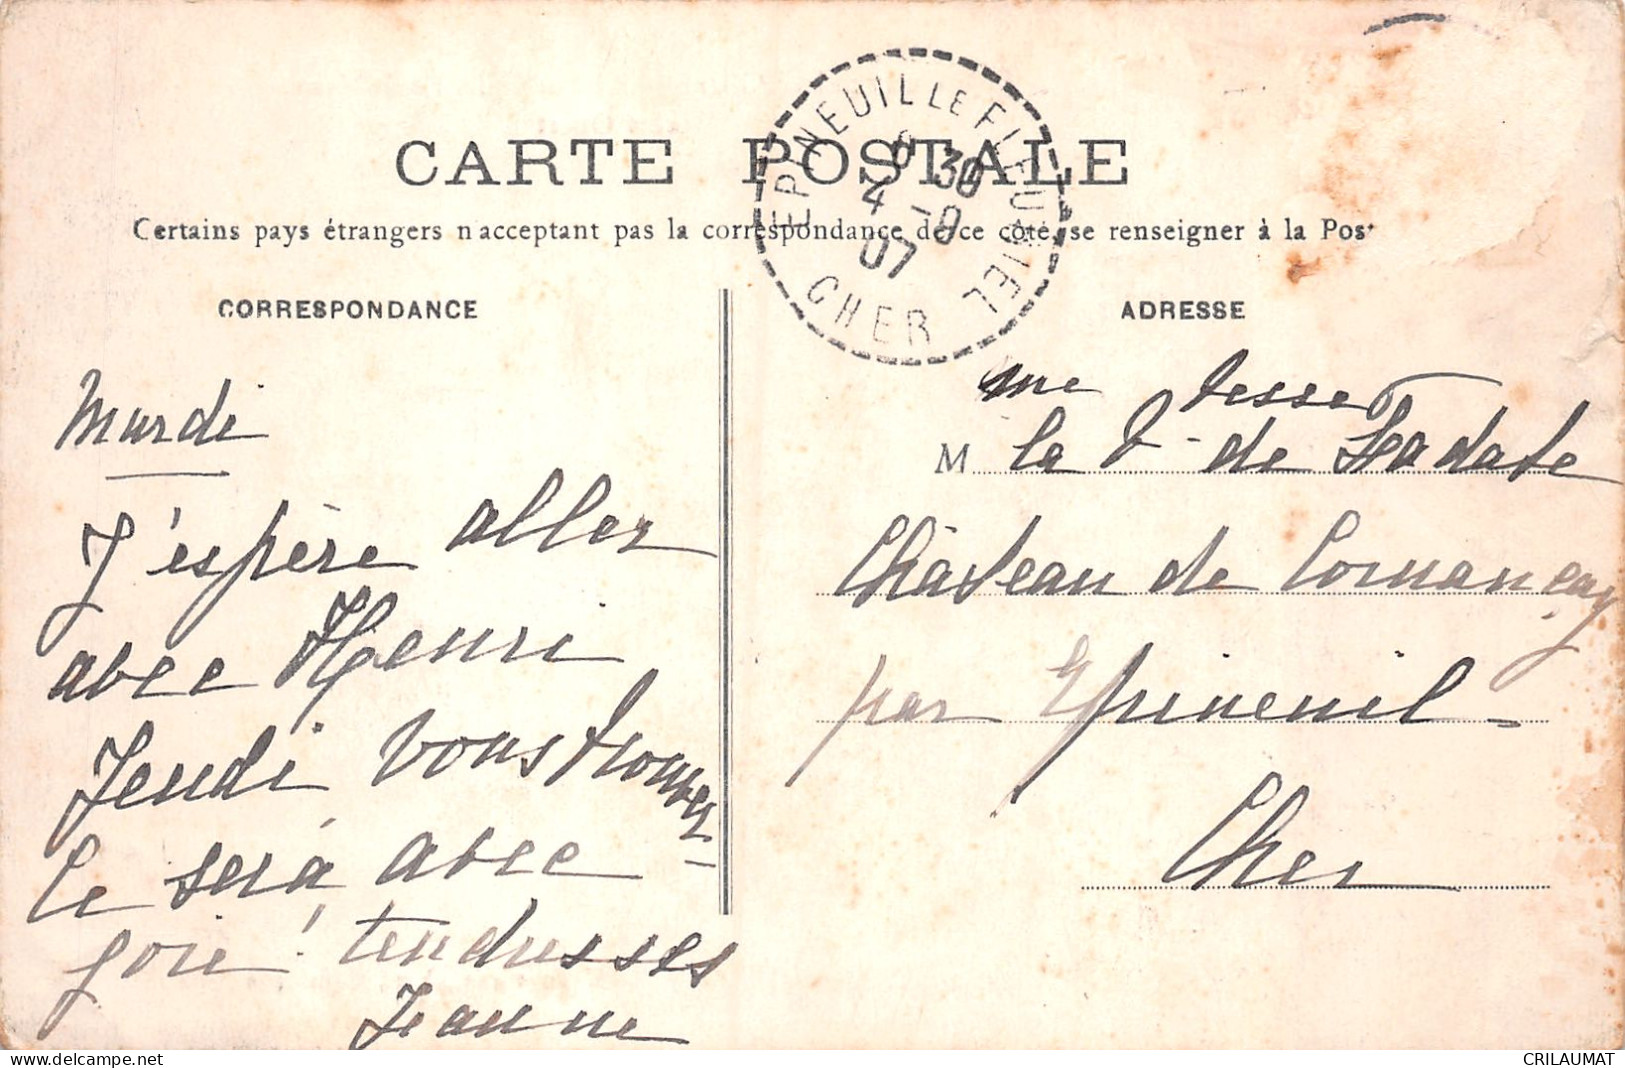 CARTE POSTALE
Certains pays étrangers n'acceptant pas la correspondance de ce côté, se renseigner à la Post
EPINEUIL LE FLEURIEL
8 30
4 -9
07
CHER
CORRESPONDANCE
Mardi
J'espère aller
avec Henri
Jeudi vous trouver –
Ce sera avec
joie ! tendresses
Jeanne
ADRESSE
Mme
tesse
M la V - de Sadate
Château de Cornançay
par Epineuil -
Cher
CRILAUMAT